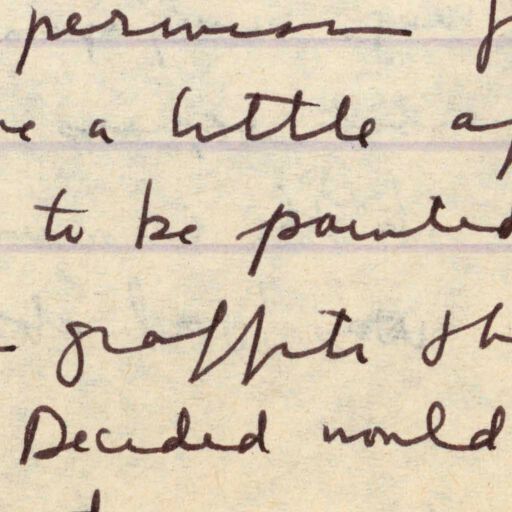 permission
a little
to be painted
graffiti
Decided would